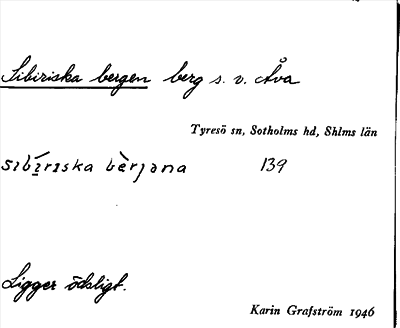 Sibiriska bergen berg s. v. Åva
Tyresö sn, Sotholms hd, Shlms län
sɪbí̱rɪska bèrjəna 139
Ligger ödsligt.
Karin Grafström 1946